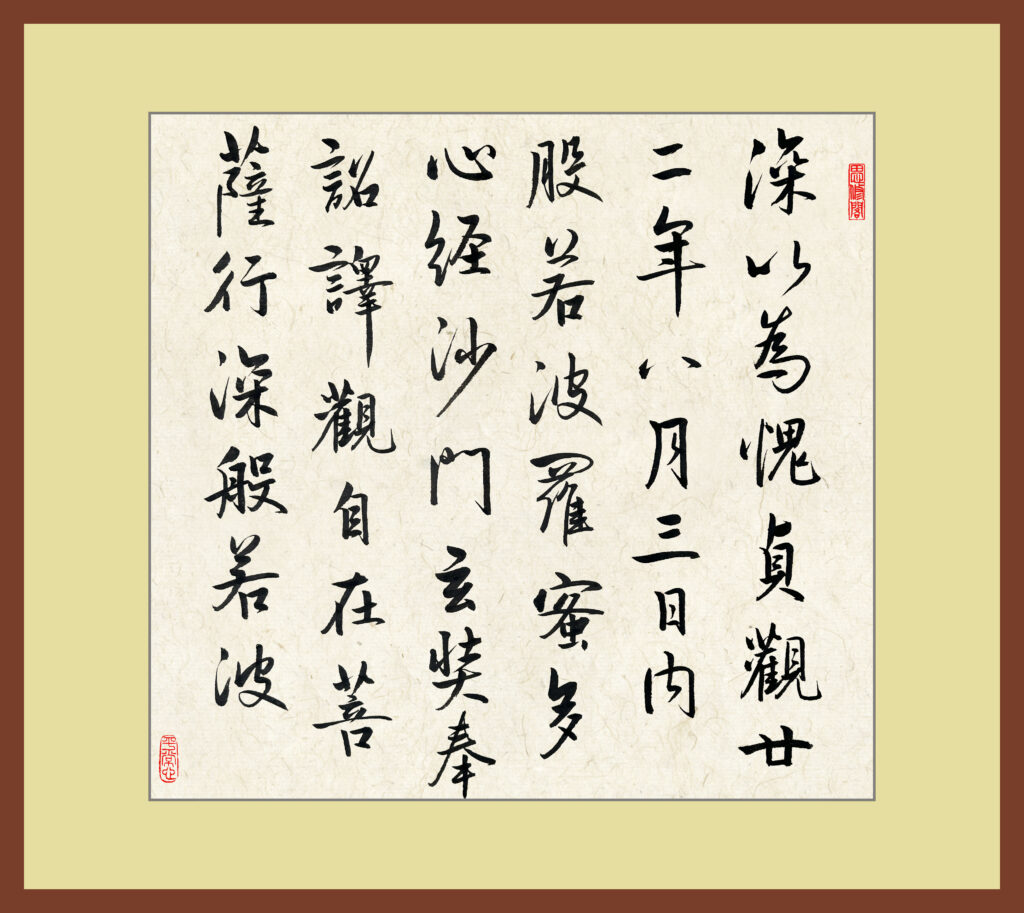 深以為愧貞觀廿
二年八月三日內
般若波羅蜜多
心経沙門玄奘奉
詔譯觀自在菩
薩行深般若波